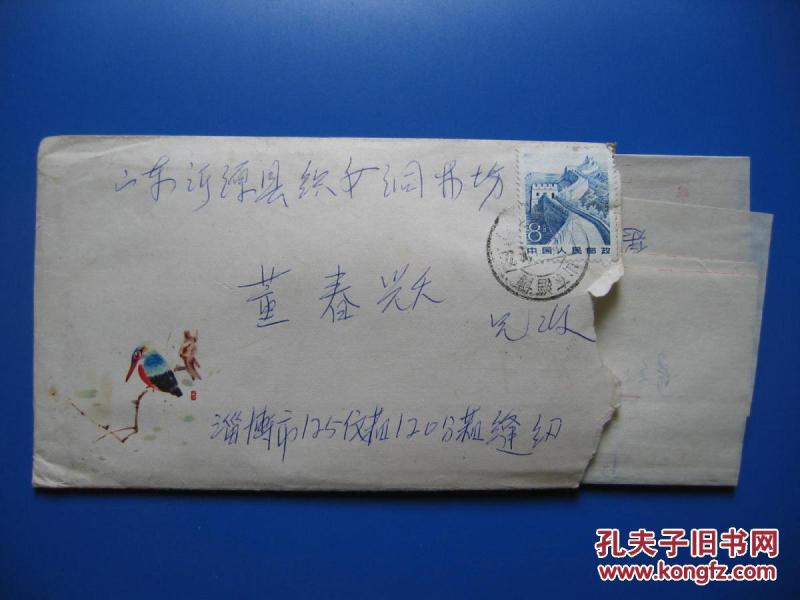 山东沂源县织女洞林场
8分
中国人民邮政
董春兴
兄收
淄博市125仪箱120分箱缝纫
孔夫子旧书网
www.kongfz.com